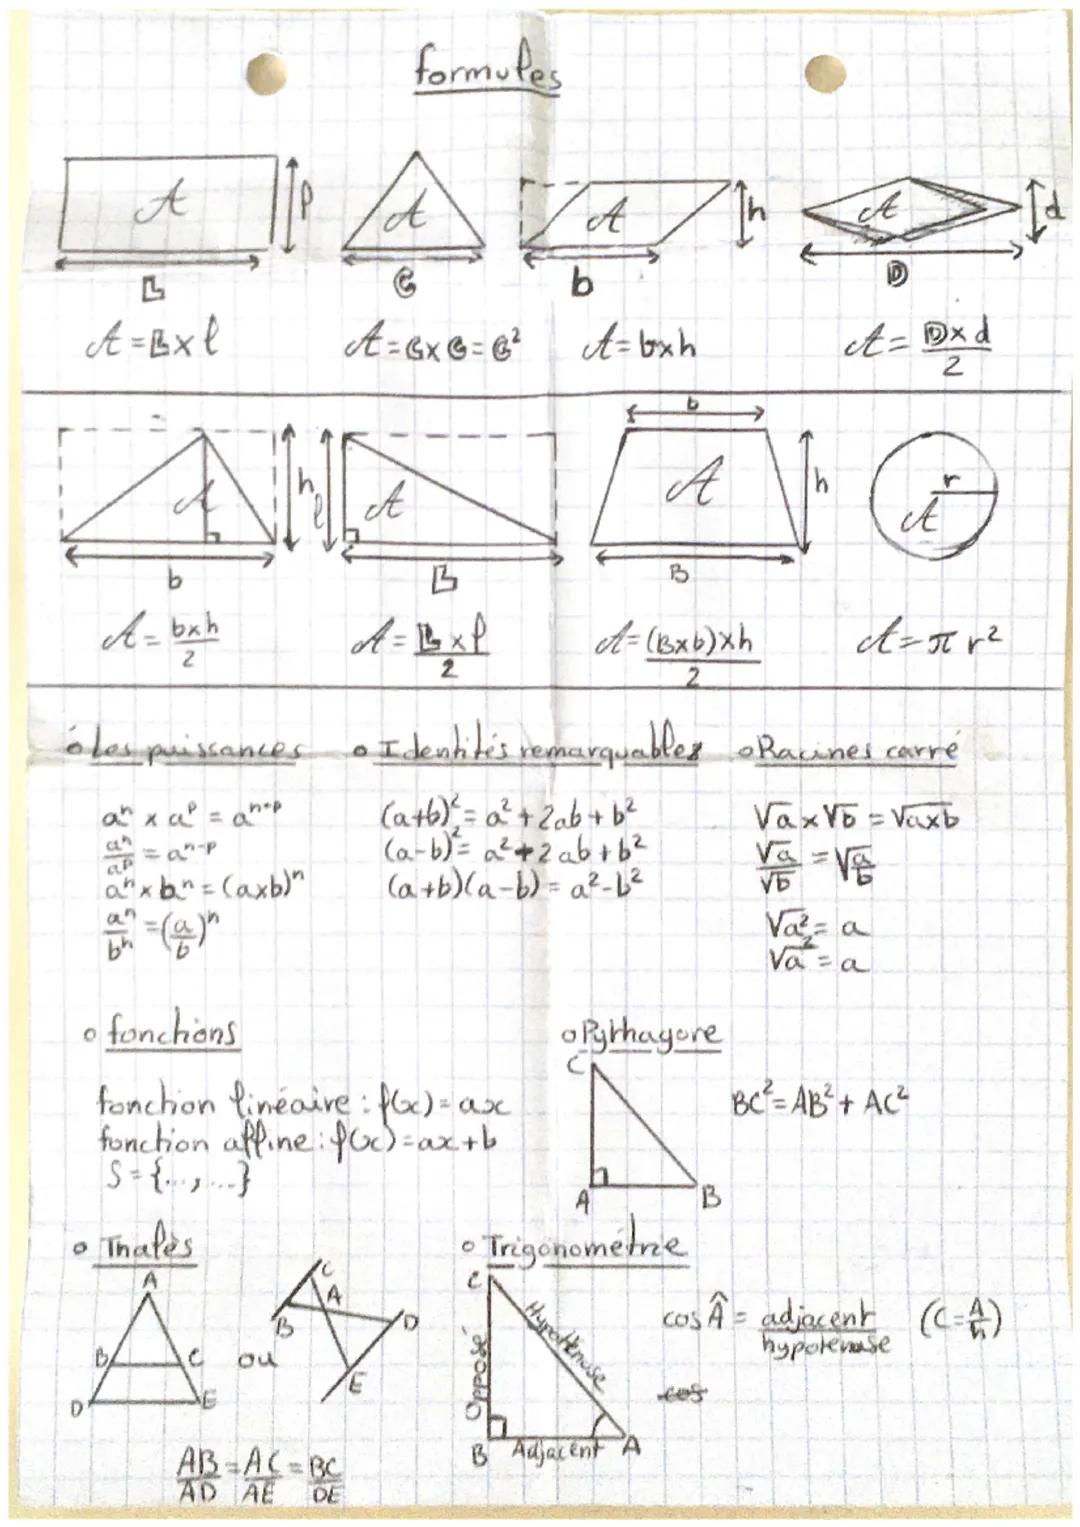 formules
A l
L
A = L x l
A
C
A = C x C = C²
A h
b
A = b x h
A d
D
A = D x d / 2
A h
b
A = b x h / 2
l A
L
A = L x l / 2
b
A h
B
A = (B x b) x h / 2
r
A
A = π r²
o Les puissances
aⁿ x aᵖ = aⁿ⁺ᵖ
aⁿ/aᵖ = aⁿ⁻ᵖ
aⁿ x bⁿ = (a x b)ⁿ
aⁿ/bⁿ = (a/b)ⁿ
o Identités remarquables
(a+b)² = a² + 2ab + b²
(a-b)² = a² + 2ab + b²
(a+b)(a-b) = a² - b²
o Racines carré
√a x √b = √axb
√a/√b = √a/b
√a² = a
√a² = a
o fonctions
fonction linéaire : f(x) = ax
fonction affine : f(x) = ax + b
S = {..., ...}
o Pythagore
C
A B
BC² = AB² + AC²
o Thalès
A
B C
D E
ou
C
A
B D
E
AB/AD = AC/AE = BC/DE
o Trigonométrie
C
Opposé Hypoténuse
B Adjacent A
cos Â = adjacent / hypoténuse (C = A/h)
cos